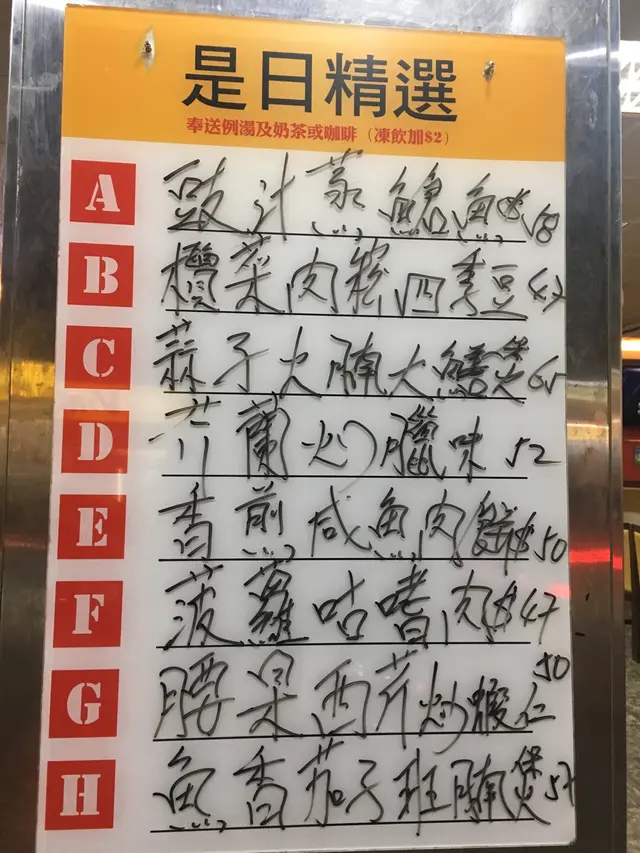 是日精選
奉送例湯及奶茶或咖啡（凍飲加$2）
A 豉汁蒸鯇魚$58
B 欖菜肉鬆四季豆47
C 蒜子火腩大鱔煲65
D 芥蘭炒臘味52
E 香煎咸魚肉餅$50
F 菠蘿咕嚕肉$47
G 腰果西芹炒蝦仁50
H 魚香茄子班腩煲57